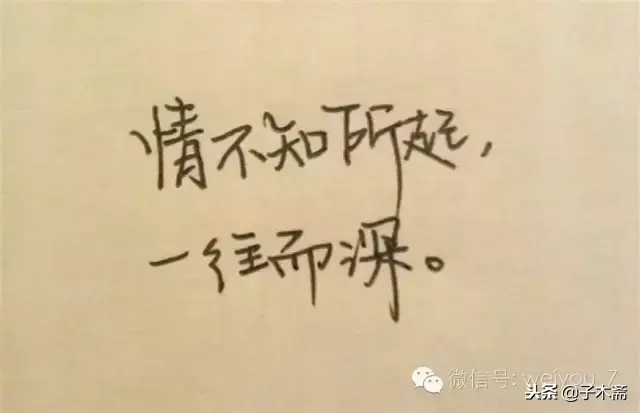 情不知所起，
一往而深。
微信号: weiyou_7
头条 @子木斋